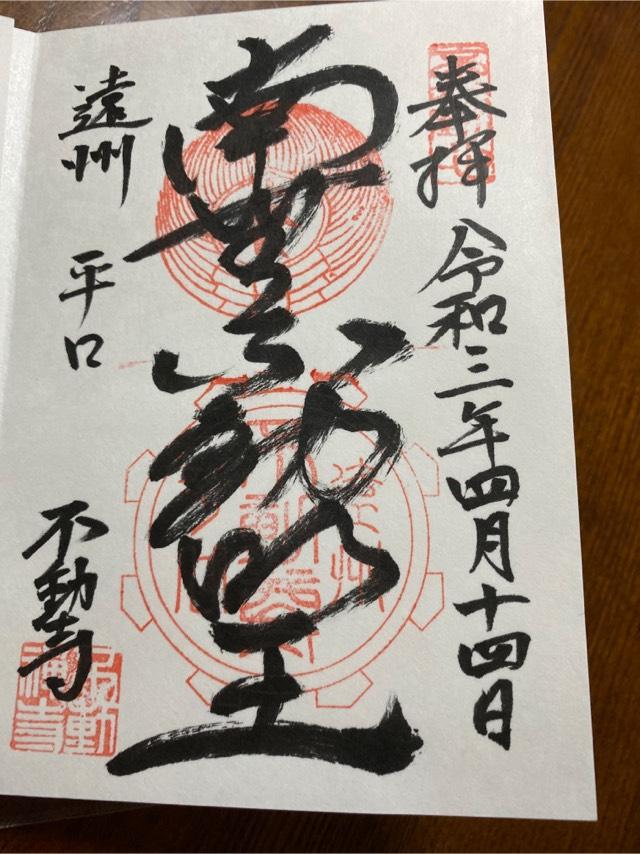 奉拝
令和三年四月十四日
南無不動明王
遠州
平口
不動寺
不動
禅寺